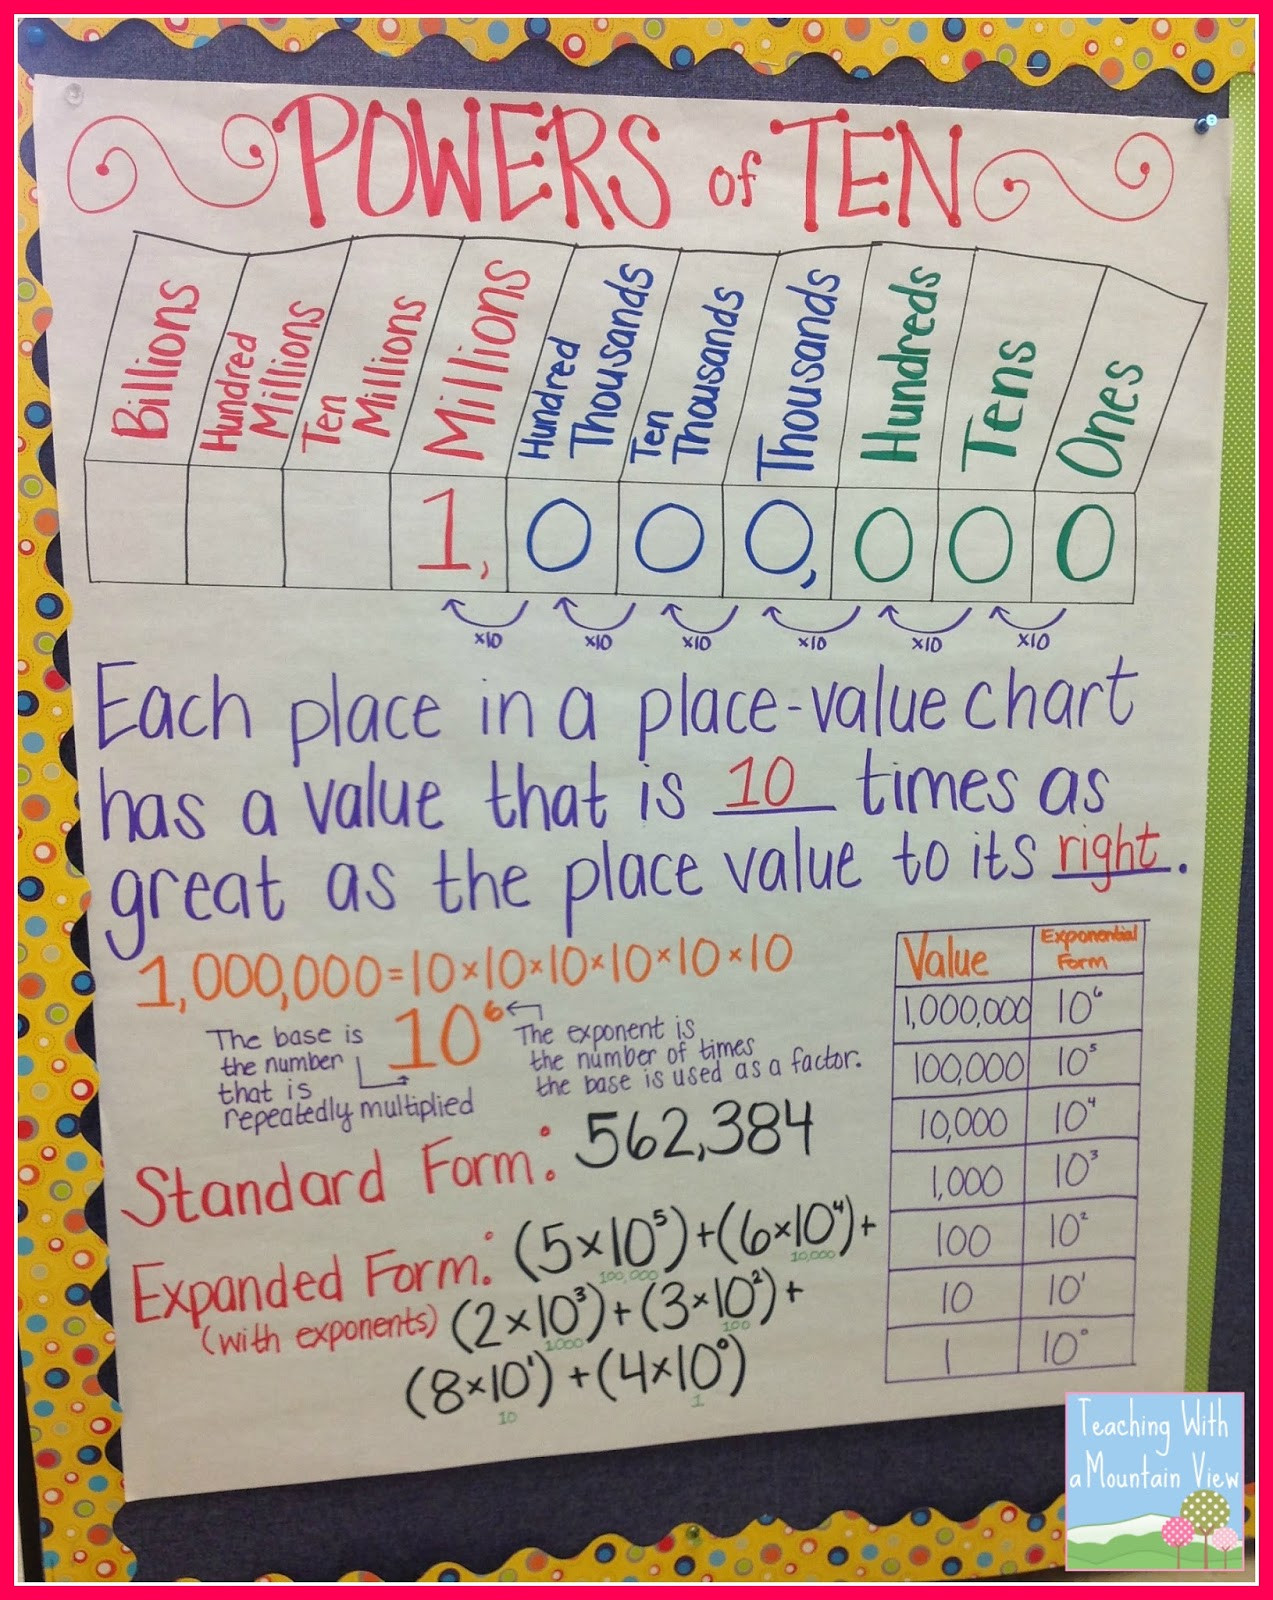 POWERS of TEN
Billions
Hundred Millions
Ten Millions
Millions
Hundred Thousands
Ten Thousands
Thousands
Hundreds
Tens
Ones
1, 0 0 0, 0 0 0
x10 x10 x10 x10 x10 x10
Each place in a place-value chart
has a value that is 10 times as
great as the place value to its right.
1,000,000=10×10×10×10×10×10
10⁶
The base is
the number
that is
repeatedly multiplied
The exponent is
the number of times
the base is used as a factor.
Standard Form: 562,384
Expanded Form: (5×10⁵)+(6×10⁴)+
100,000 10,000
(with exponents) (2×10³)+(3×10²)+
1000 100
(8×10¹)+(4×10⁰)
10 1
Value Exponential Form
1,000,000 10⁶
100,000 10⁵
10,000 10⁴
1,000 10³
100 10²
10 10¹
1 10⁰
Teaching With
a Mountain View